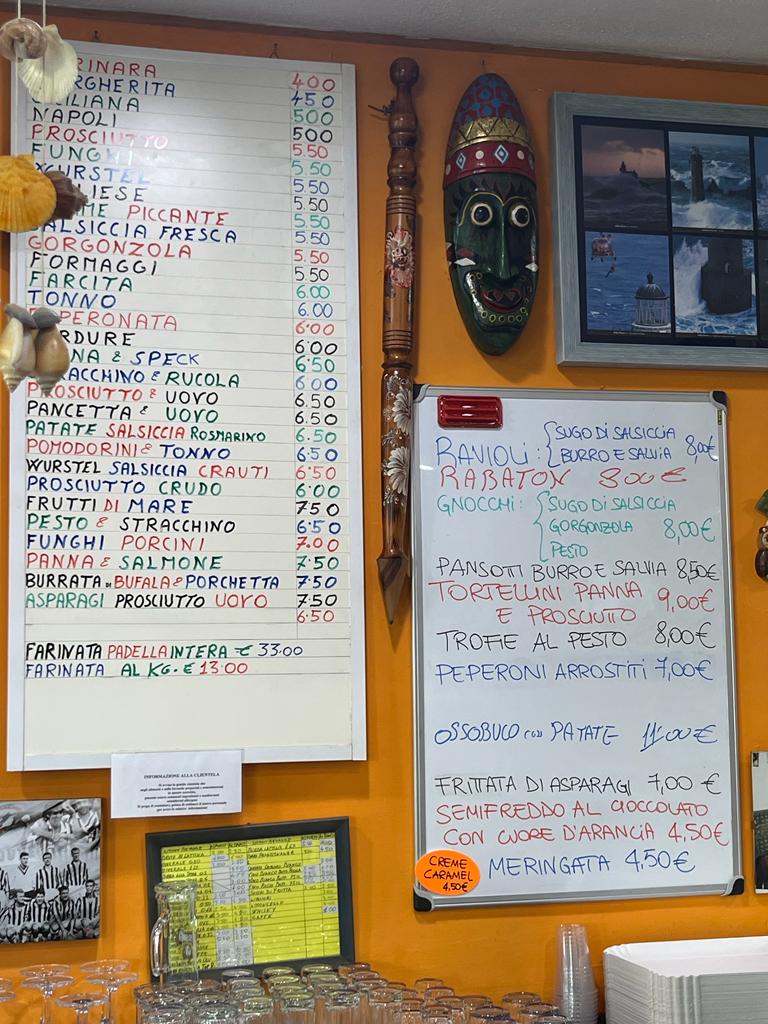 RINARA 4.00
RGHERITA 4.50
ILIANA 5.00
NAPOLI 5.00
PROSCIUTTO 5.50
FUNGHI 5.50
WURSTEL 5.50
LIESE 5.50
AME PICCANTE 5.50
SALSICCIA FRESCA 5.50
GORGONZOLA 5.50
FORMAGGI 5.50
FARCITA 6.00
TONNO 6.00
PEPERONATA 6.00
RDURE 6.00
NNA & SPECK 6.50
ACCHINO & RUCOLA 6.00
PROSCIUTTO & UOVO 6.50
PANCETTA & UOVO 6.50
PATATE SALSICCIA ROSMARINO 6.50
POMODORINI & TONNO 6.50
WURSTEL SALSICCIA CRAUTI 6.50
PROSCIUTTO CRUDO 6.00
FRUTTI DI MARE 7.50
PESTO & STRACCHINO 6.50
FUNGHI PORCINI 7.00
PANNA & SALMONE 7.50
BURRATA DI BUFALA & PORCHETTA 7.50
ASPARAGI PROSCIUTTO UOVO 7.50
6.50
FARINATA PADELLA INTERA € 33.00
FARINATA AL KG. € 13.00
INFORMAZIONE ALLA CLIENTELA
RAVIOLI: SUGO DI SALSICCIA
BURRO E SALVIA 8,00€
RABATON 8,00€
GNOCCHI: SUGO DI SALSICCIA
GORGONZOLA 8,00€
PESTO
PANSOTI BURRO E SALVIA 8,50€
TORTELLINI PANNA
E PROSCIUTO 9,00€
TROFIE AL PESTO 8,00€
PEPERONI ARROSTITI 7,00€
OSSOBUCO CON PATATE 11,00€
FRITTATA DI ASPARAGI 7,00€
SEMIFREDDO AL CIOCCOLATO
CON CUORE D'ARANCIA 4,50€
MERINGATA 4,50€
CREME
CARAMEL
4,50€